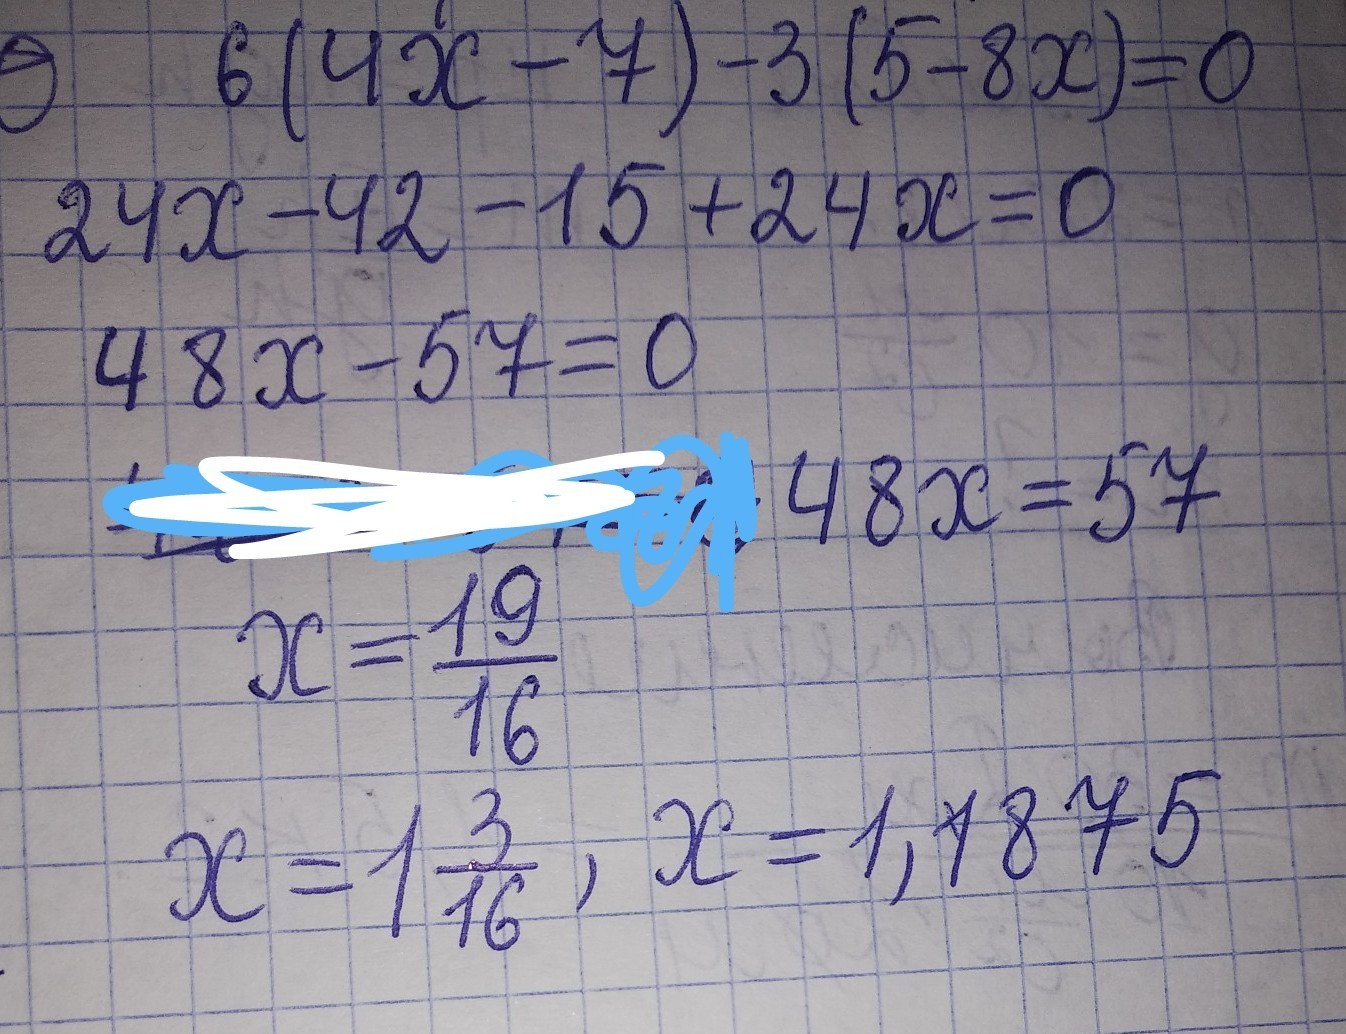 6(4x-7)-3(5-8x)=0
24x-42-15+24x=0
48x-57=0
48x=57
x=19/16
x=1 3/16, x=1,1875